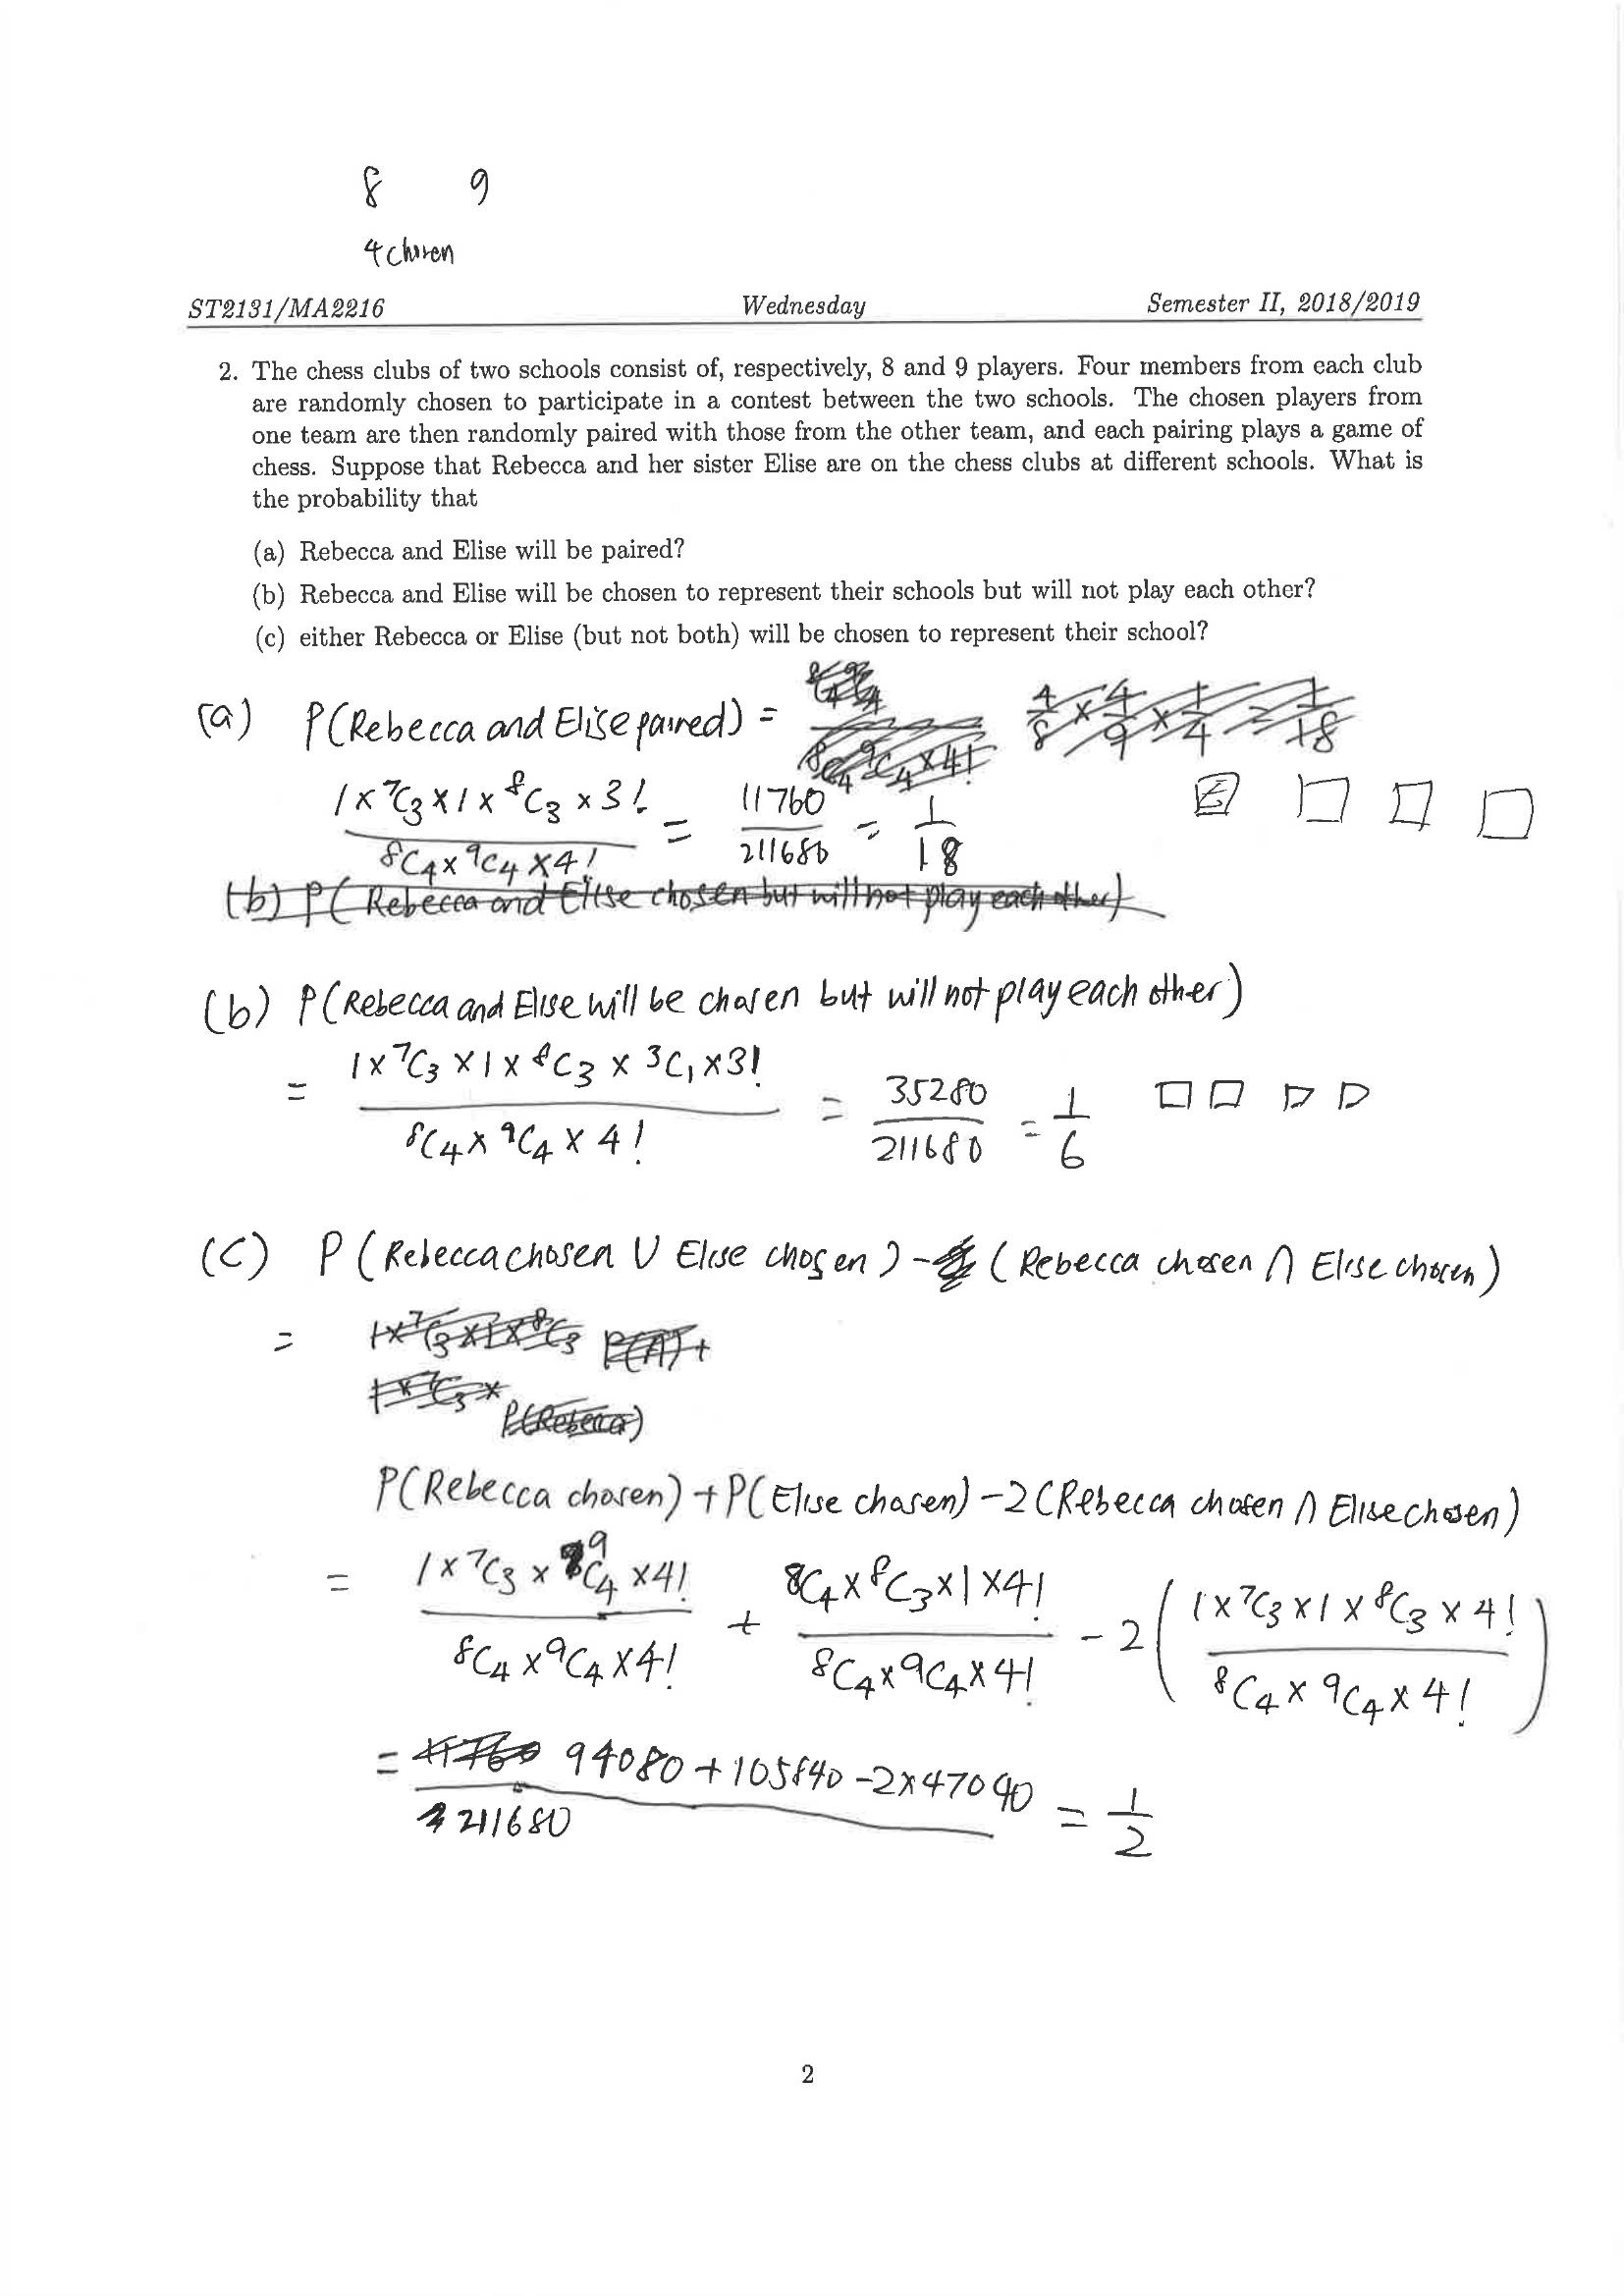 8 9
4 chosen
ST2131/MA2216 Wednesday Semester II, 2018/2019
2. The chess clubs of two schools consist of, respectively, 8 and 9 players. Four members from each club
are randomly chosen to participate in a contest between the two schools. The chosen players from
one team are then randomly paired with those from the other team, and each pairing plays a game of
chess. Suppose that Rebecca and her sister Elise are on the chess clubs at different schools. What is
the probability that
(a) Rebecca and Elise will be paired?
(b) Rebecca and Elise will be chosen to represent their schools but will not play each other?
(c) either Rebecca or Elise (but not both) will be chosen to represent their school?
(a) P(Rebecca and Elise paired) =
4/8 × 4/9 × 1/4 = 1/18
1 × ⁷C₃ × 1 × ⁸C₃ × 3! / ⁸C₄ × ⁹C₄ × 4! = 11760 / 211680 = 1/18
(b) P(Rebecca and Elise chosen but will not play each other)
(b) P(Rebecca and Elise will be chosen but will not play each other)
= 1 × ⁷C₃ × 1 × ⁸C₃ × ³C₁ × 3! / ⁸C₄ × ⁹C₄ × 4! = 35280 / 211680 = 1/6
(c) P(Rebecca chosen ∪ Elise chosen) - (Rebecca chosen ∩ Elise chosen)
= 1 × ⁷C₃ × 1 × ⁸C₃ P(A) +
1 × ⁷C₃ ×
P(Rebecca)
P(Rebecca chosen) + P(Elise chosen) - 2(Rebecca chosen ∩ Elise chosen)
= 1 × ⁷C₃ × ⁹C₄ × 4! / ⁸C₄ × ⁹C₄ × 4! + ⁸C₄ × ⁸C₃ × 1 × 4! / ⁸C₄ × ⁹C₄ × 4! - 2(1 × ⁷C₃ × 1 × ⁸C₃ × 4! / ⁸C₄ × ⁹C₄ × 4!)
= 94080 + 105840 - 2 × 47040 / 211680 = 1/2
2